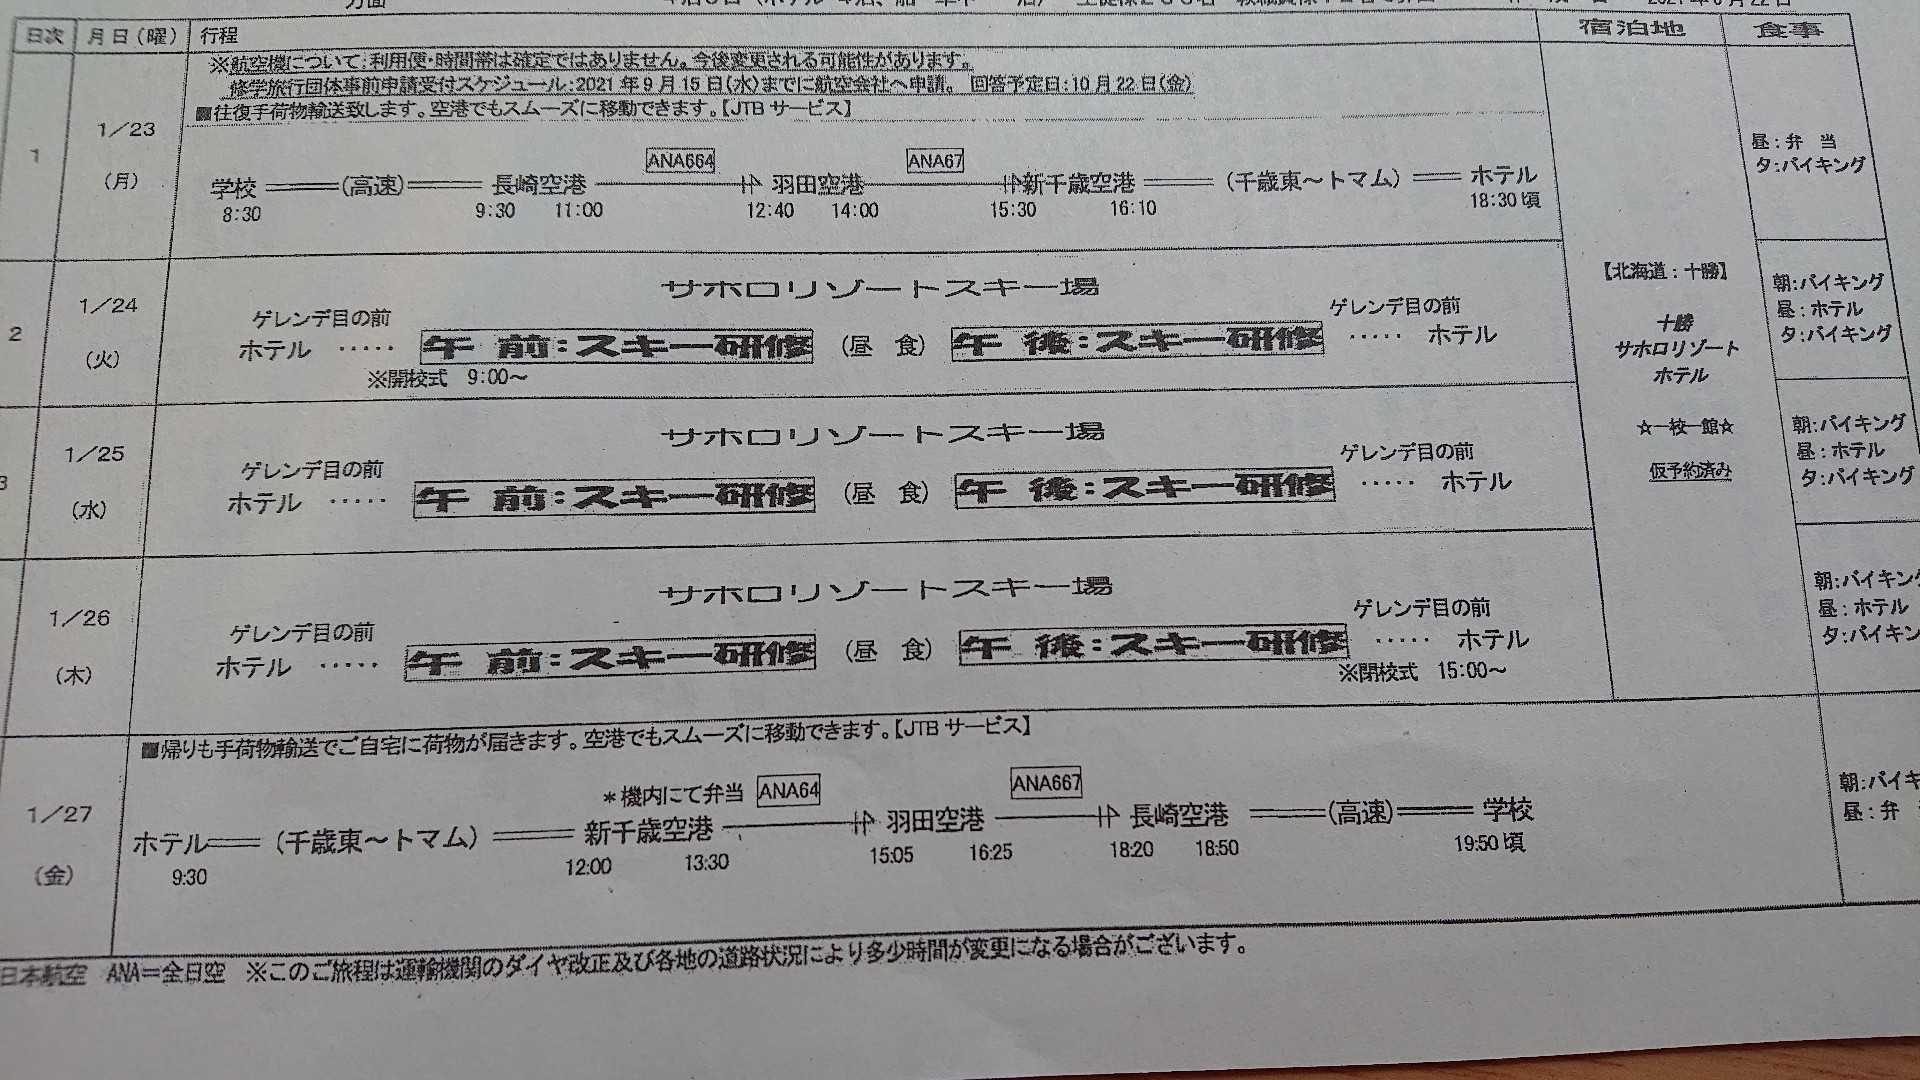 日次 月日（曜） 行程 宿泊地 食事
※航空機について：利用便・時間帯は確定ではありません。今後変更される可能性があります。
修学旅行団体事前申請受付スケジュール：2021年9月15日（水）までに航空会社へ申請。 回答予定日：10月22日（金）
■往復手荷物輸送致します。空港でもスムーズに移動できます。【JTBサービス】
1
1／23
（月）
ANA664 ANA67
学校 （高速） 長崎空港 羽田空港 新千歳空港 （千歳東～トマム） ホテル
8:30 9:30 11:00 12:40 14:00 15:30 16:10 18:30頃
昼：弁 当
夕：バイキング
2
1／24
（火）
サホロリゾートスキー場
ゲレンデ目の前 ゲレンデ目の前
ホテル ····· 午 前：スキー研修 （昼 食） 午 後：スキー研修 ····· ホテル
※開校式 9:00～
【北海道：十勝】
十勝
サホロリゾート
ホテル
☆一校一館☆
仮予約済み
朝：バイキング
昼：ホテル
夕：バイキング
3
1／25
（水）
サホロリゾートスキー場
ゲレンデ目の前 ゲレンデ目の前
ホテル ····· 午 前：スキー研修 （昼 食） 午 後：スキー研修 ····· ホテル
朝：バイキング
昼：ホテル
夕：バイキング
1／26
（木）
サホロリゾートスキー場
ゲレンデ目の前 ゲレンデ目の前
ホテル ····· 午 前：スキー研修 （昼 食） 午 後：スキー研修 ····· ホテル
※閉校式 15:00～
朝：バイキング
昼：ホテル
夕：バイキン
1／27
（金）
■帰りも手荷物輸送でご自宅に荷物が届きます。空港でもスムーズに移動できます。【JTBサービス】
＊機内にて弁当 ANA64 ANA667
ホテル （千歳東～トマム） 新千歳空港 羽田空港 長崎空港 （高速） 学校
9:30 12:00 13:30 15:05 16:25 18:20 18:50 19:50頃
朝：バイキ
昼：弁
日本航空 ANA＝全日空 ※このご旅程は運輸機関のダイヤ改正及び各地の道路状況により多少時間が変更になる場合がございます。